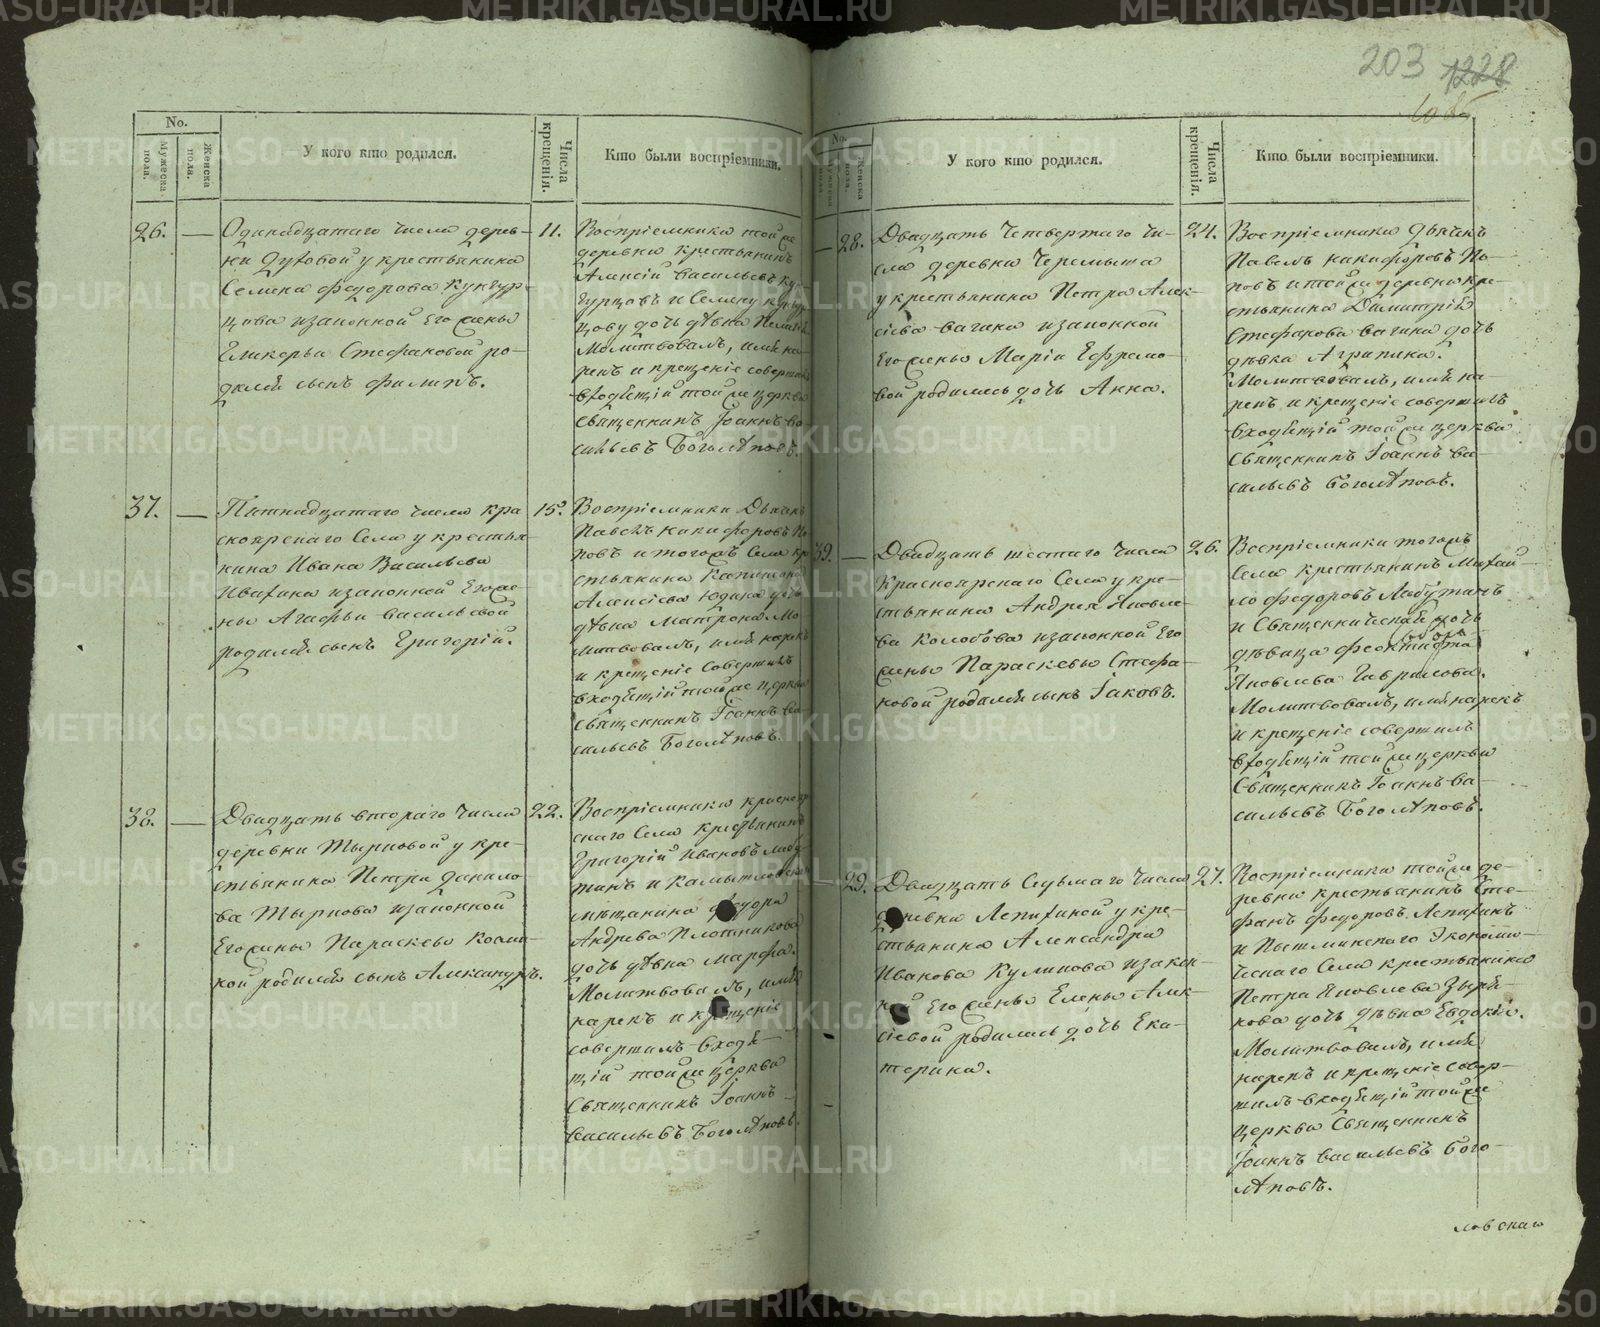 203 1228
No.
Мужеска пола.
Женска пола.
У кого кто родился.
Числа крещенія.
Кто были воспріемники.
26. — Одинадцатаго числа дерев-
ни Духовой у крестьянина
Семена Федорова Кунгур-
цова изаконной Его жены
Гликерьи Стефановой ро-
дился сынъ Филипъ.
11.
Воспріемники той же
деревни крестьянинъ
Алексій Васильевъ Кун-
гурцовъ и Семену Кунгур
цову дочь дѣвка
Молитвовалъ, имя на-
рекъ и крещеніе совершилъ
входящій той же церкви
Священникъ Іоаннъ Ва-
сильевъ Боголѣповъ.
37. — Пятнадцатаго числа Кра
сноярскаго Села у крестья-
нина Ивана Васильева
Ивахина изаконной Его же-
ны Агафьи Васильевой
родился сынъ Григорій.
15.
Воспріемники Дьячекъ
Павелъ Никифоровъ По
повъ и тогожъ Села кре
стьянина Капитона
Алексіева Юдина дочь
дѣвка Матрона Мо-
литвовалъ, имя нарекъ
и крещеніе Совершилъ
входящій той же церкви
Священникъ Іоаннъ Ва-
сильевъ Боголѣповъ.
38. — Двадцать втораго Числа
деревни Тырковой у кре-
стьянина Петра Данило-
ва Тыркова изаконной
Его жены Параскевы Козми-
ной родился сынъ Александръ.
22.
Воспріемники Краснояр
скаго Села Крестьянинъ
Григорій Ивановъ Лабу
тинъ и Камышловскаго
мѣщанина Федора
Андрева Плотникова
дочь дѣвка Марфа.
Молитвовалъ, имя
нарекъ и крещеніе
совершилъ входя-
щій той же церкви
Священникъ Іоаннъ
Васильевъ Боголѣповъ.
No.
Мужеска пола.
Женска пола.
У кого кто родился.
Числа крещенія.
Кто были воспріемники.
— 28. Двадцать Четвертаго Чи-
сла деревни Черемыша
у крестьянина Петра Алек-
сіева Вагина изаконной
Его жены Маріи Ефремо-
вой родилась дочь Анна.
24.
Воспріемники Дьячекъ
Павелъ Никифоровъ По-
повъ и той же деревни кре-
стьянина Димитрія
Стефанова Вагина дочь
дѣвка Агрипина.
Молитвовалъ, имя на-
рекъ и крещеніе совершилъ
входящій той же церкви
Священникъ Іоаннъ Ва-
сильевъ Боголѣповъ.
39. — Двадцать шестаго Числа
Красноярскаго Села у кре-
стьянина Андрея Яковле-
ва Колобова изаконной Его
жены Параскевы Стефа-
новой родился сынъ Іаковъ.
26.
Воспріемники тогожъ
Села крестьянинъ Михай-
ло Федоровъ Лабутинъ
и Священническая дочь
дѣвица
Яковлева Гаврилова.
Молитвовалъ, имя нарекъ
и крещеніе совершилъ
входящій той же церкви
Священникъ Іоаннъ Ва-
сильевъ Боголѣповъ.
— 29. Двадцать Седьмаго Числа
деревни Лепихиной у кре-
стьянина Александра
Иванова Куликова изакон-
ной Его жены Елены Алек-
сіевой родилась дочь Ека-
терина.
27.
Воспріемники той же де-
ревни крестьянинъ Сте-
фанъ Федоровъ Лепихинъ
и Пышминскаго Экономи-
ческаго Села крестьянина
Петра Яковлева Зыря-
нова дочь дѣвка Евдокія.
Молитвовалъ, имя
нарекъ и крещеніе совер-
шилъ входящій той же
церкви Священникъ
Іоаннъ Васильевъ Бого-
лѣповъ.
ловскаго
METRIKI.GASO-URAL.RU